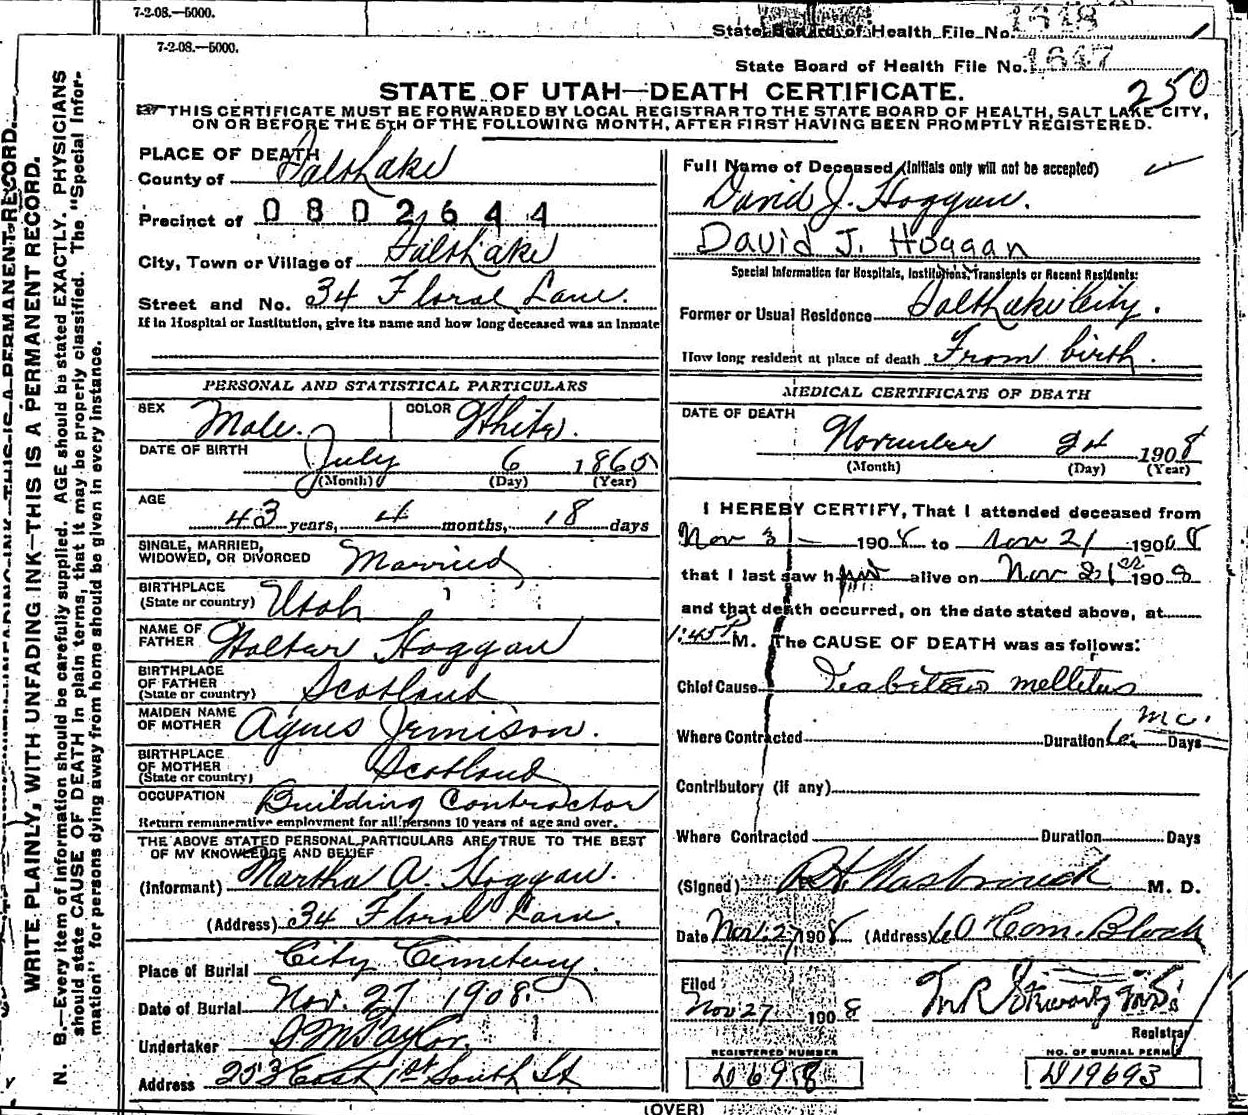 7-2-08.—5000.
State Board of Health File No. 1648
7-2-08.—5000.
State Board of Health File No. 1647
250
STATE OF UTAH—DEATH CERTIFICATE.
THIS CERTIFICATE MUST BE FORWARDED BY LOCAL REGISTRAR TO THE STATE BOARD OF HEALTH, SALT LAKE CITY,
ON OR BEFORE THE 5TH OF THE FOLLOWING MONTH, AFTER FIRST HAVING BEEN PROMPTLY REGISTERED.
WRITE PLAINLY, WITH UNFADING INK—THIS IS A PERMANENT RECORD.
N. B.—Every item of information should be carefully supplied. AGE should be stated EXACTLY. PHYSICIANS
should state CAUSE OF DEATH in plain terms, that it may be properly classified. The "Special Infor-
mation" for persons dying away from home should be given in every instance.
PLACE OF DEATH
County of Salt Lake
Precinct of 0802644
City, Town or Village of Salt Lake
Street and No. 34 Floral Lane.
If in Hospital or Institution, give its name and how long deceased was an inmate
PERSONAL AND STATISTICAL PARTICULARS
SEX Male. COLOR White.
DATE OF BIRTH July 6 1865
(Month) (Day) (Year)
AGE
43 years, 4 months, 18 days
SINGLE, MARRIED,
WIDOWED, OR DIVORCED Married
BIRTHPLACE
(State or country) Utah
NAME OF
FATHER Walter Hoggan
BIRTHPLACE
OF FATHER
(State or country) Scotland
MAIDEN NAME
OF MOTHER Agnes Jemison.
BIRTHPLACE
OF MOTHER
(State or country) Scotland
OCCUPATION Building Contractor
Return remunerative employment for all persons 10 years of age and over.
THE ABOVE STATED PERSONAL PARTICULARS ARE TRUE TO THE BEST
OF MY KNOWLEDGE AND BELIEF
(Informant) Martha A. Hoggan.
(Address) 34 Floral Lane.
Place of Burial City Cemetery.
Date of Burial Nov. 27 1908.
Undertaker S M Taylor.
Address 253 East 1st South St
Full Name of Deceased (Initials only will not be accepted)
David J. Hoggan.
David J. Hoggan
Special Information for Hospitals, Institutions, Transients or Recent Residents:
Former or Usual Residence Salt Lake City.
How long resident at place of death From birth.
MEDICAL CERTIFICATE OF DEATH
DATE OF DEATH
November 24 1908
(Month) (Day) (Year)
I HEREBY CERTIFY, That I attended deceased from
Nov 3 — 1908 to Nov 21 1908
that I last saw him alive on Nov 21st 1908
and that death occurred, on the date stated above, at
1:45 P M. The CAUSE OF DEATH was as follows:
Chief Cause Diabetes mellitus
Where Contracted Duration 6 mo. Days
Contributory (if any)
Where Contracted Duration Days
(Signed) M. D.
Date Nov. 27 1908 (Address) 60 Com. Block
Filed
Nov 27 1908
Registrar
REGISTERED NUMBER
D 698
NO. OF BURIAL PERMIT
D19693
(OVER)